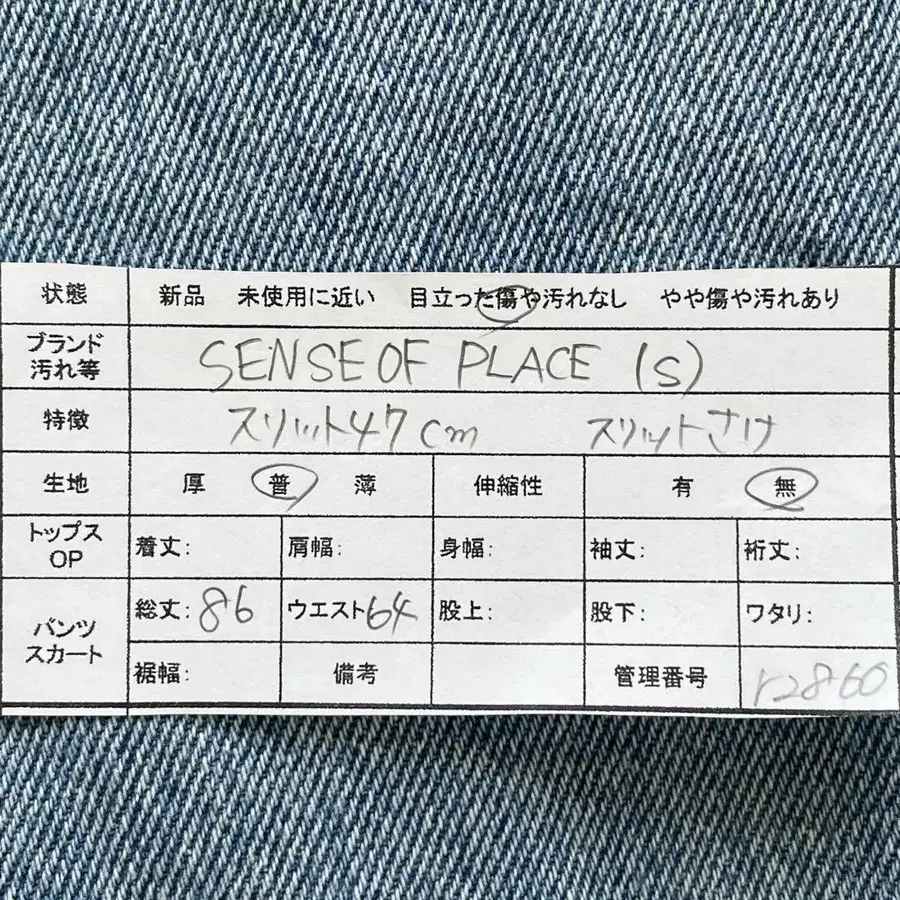 状態 新品 未使用に近い 目立った傷や汚れなし やや傷や汚れあり
ブランド
汚れ等
SENSE OF PLACE (S)
特徴 スリット47cm スリットさけ
生地 厚 普 薄 伸縮性 有 無
トップス
OP
着丈: 肩幅: 身幅: 袖丈: 裄丈:
パンツ
スカート
総丈:86 ウエスト64 股上: 股下: ワタリ:
裾幅: 備考 管理番号 r2860